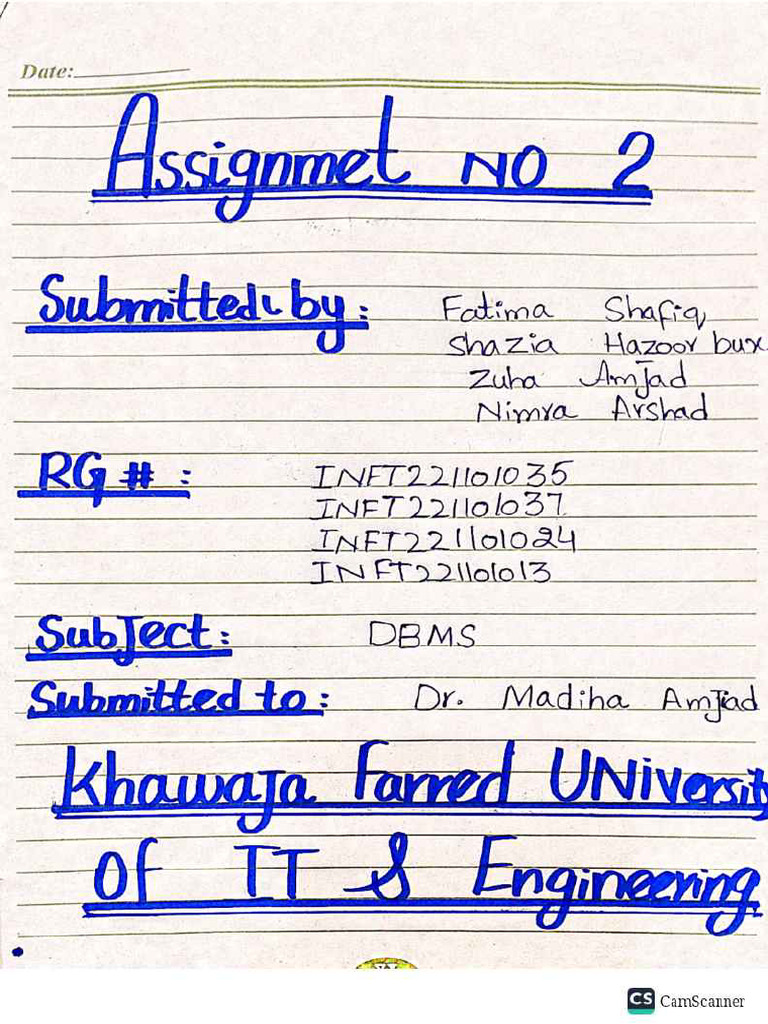 Date:
Assignmet NO 2
Submitted by:
Fatima Shafiq
Shazia Hazoor bux
Zuha Amjad
Nimra Arshad
RG #:
INFT221101035
INFT221101037
INFT221101024
INFT221101013
SubJect: DBMS
Submitted to: Dr. Madiha Amjad
KhawaJa Farred UNiversity
Of IT & Engineering
CS CamScanner